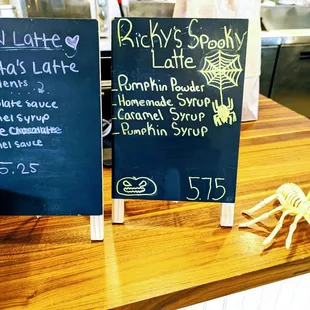 Latte
ta's Latte
ents:
late sauce
el syrup
e Chocolatte
el sauce
5.25
Ricky's Spooky
Latte
-Pumpkin Powder
-Homemade Syrup
-Caramel Syrup
-Pumpkin Syrup
5.75